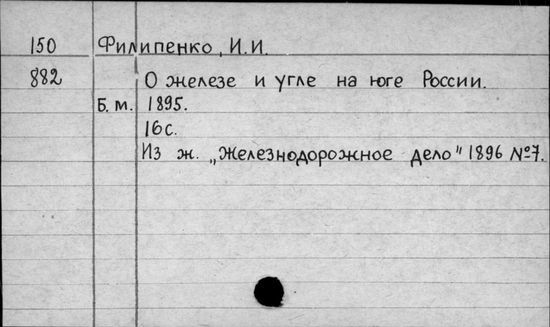 150 Филипенко, И.И.
882 О железе и угле на юге России.
Б.м. 1895.
16с.
Из ж. „Железнодорожное дело" 1896 №7.